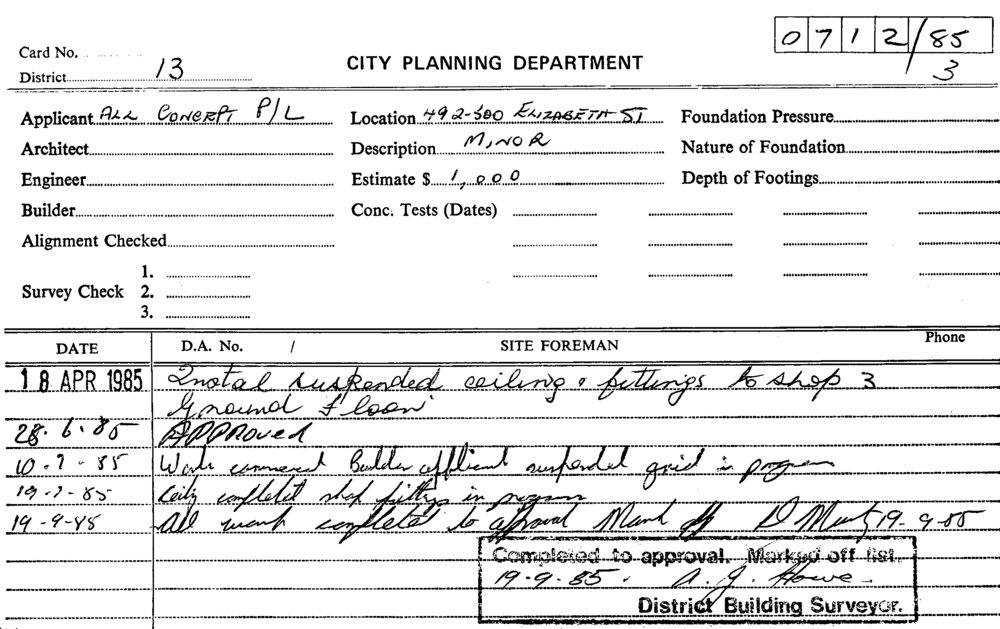 0712/85
3
Card No.
District 13
CITY PLANNING DEPARTMENT
Applicant ALL CONCEPT P/L
Location 492-500 ELIZABETH ST
Foundation Pressure
Architect
Description MINOR
Nature of Foundation
Engineer
Estimate $ 1,000
Depth of Footings
Builder
Conc. Tests (Dates)
Alignment Checked
Survey Check 1.
2.
3.
DATE D.A. No. / SITE FOREMAN Phone
18 APR 1985 Instal suspended ceiling & fittings to shop 3
Ground Floor
28.6.85 APPROVED
10-7-85 Work commenced Builder applicant suspended grid in progress
19-7-85 Ceiling completed shop fittings in progress
19-9-85 All work completed to approval Mark off D 19-9-85
Completed to approval. Marked off list.
19.9.85. A. J. Howe.
District Building Surveyor.